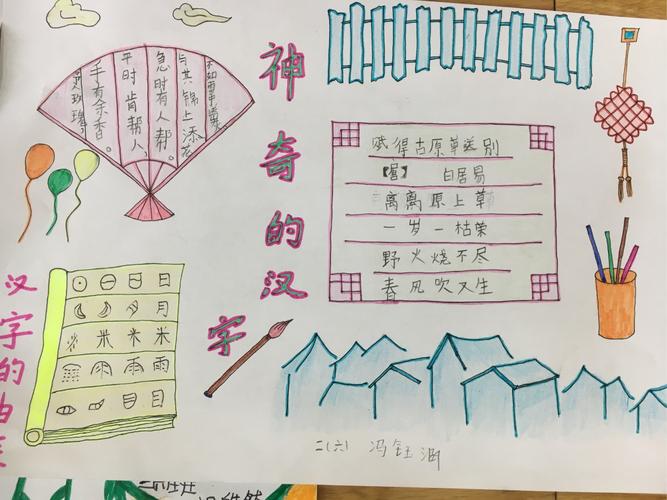 神奇的汉字
玫瑰,
手有余香。
平时肯帮人,
急时有人帮。
与其锦上添花
赋得古原草送别
【唐】 白居易
离离原上草
一岁一枯荣
野火烧不尽
春风吹又生
汉字的由来
日
月
米 米 米
雨 雨
目
二(六) 冯钰润